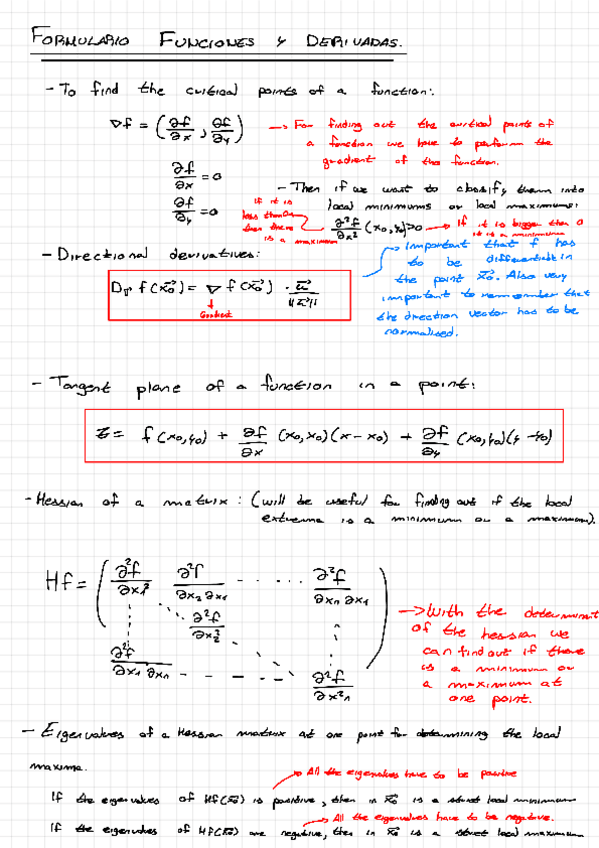 FORMULARIO FUNCIONES Y DERIVADAS.
- To find the critical points of a function:
∇f = (∂f/∂x, ∂f/∂y)
→ For finding out the critical points of
a function we have to perform the
gradient of the function.
∂f/∂x = 0
∂f/∂y = 0
- Then if we want to classify them into
local minimums or local maximums:
If it is
less than 0
then there
is a maximum
∂²f/∂x² (x₀,y₀) > 0
→ If it is bigger then 0
it is a minimum
- Directional derivatives:
D_v f(x₀) = ∇f(x₀) · v/||v||
Gradient
→ Important that f has
to be differentiable in
the point x₀. Also very
important to remember that
the direction vector has to be
normalised.
- Tangent plane of a function in a point:
z = f(x₀,y₀) + ∂f/∂x (x₀,x₀)(x-x₀) + ∂f/∂y (x₀,y₀)(y-y₀)
- Hessian of a matrix: (will be useful for finding out if the local
extreme is a minimum or a maximum).
Hf = ( ∂²f/∂x₁² ∂²f/∂x₂∂x₁ ---- ∂²f/∂xn∂x₁
∂²f/∂x₂²
∂²f/∂x₁∂xn ----- ∂²f/∂x²n )
→ With the determinant
of the hessian we
can find out if there
is a minimum or
a maximum at
one point.
- Eigenvalues of a Hessian matrix at one point for determining the local
maxima.
→ All the eigenvalues have to be positive
If the eigenvalues of Hf(x₀) is positive, then in x₀ is a strict local minimum
→ All the eigenvalues have to be negative.
If the eigenvalues of Hf(x₀) are negative, then in x₀ is a strict local maximum